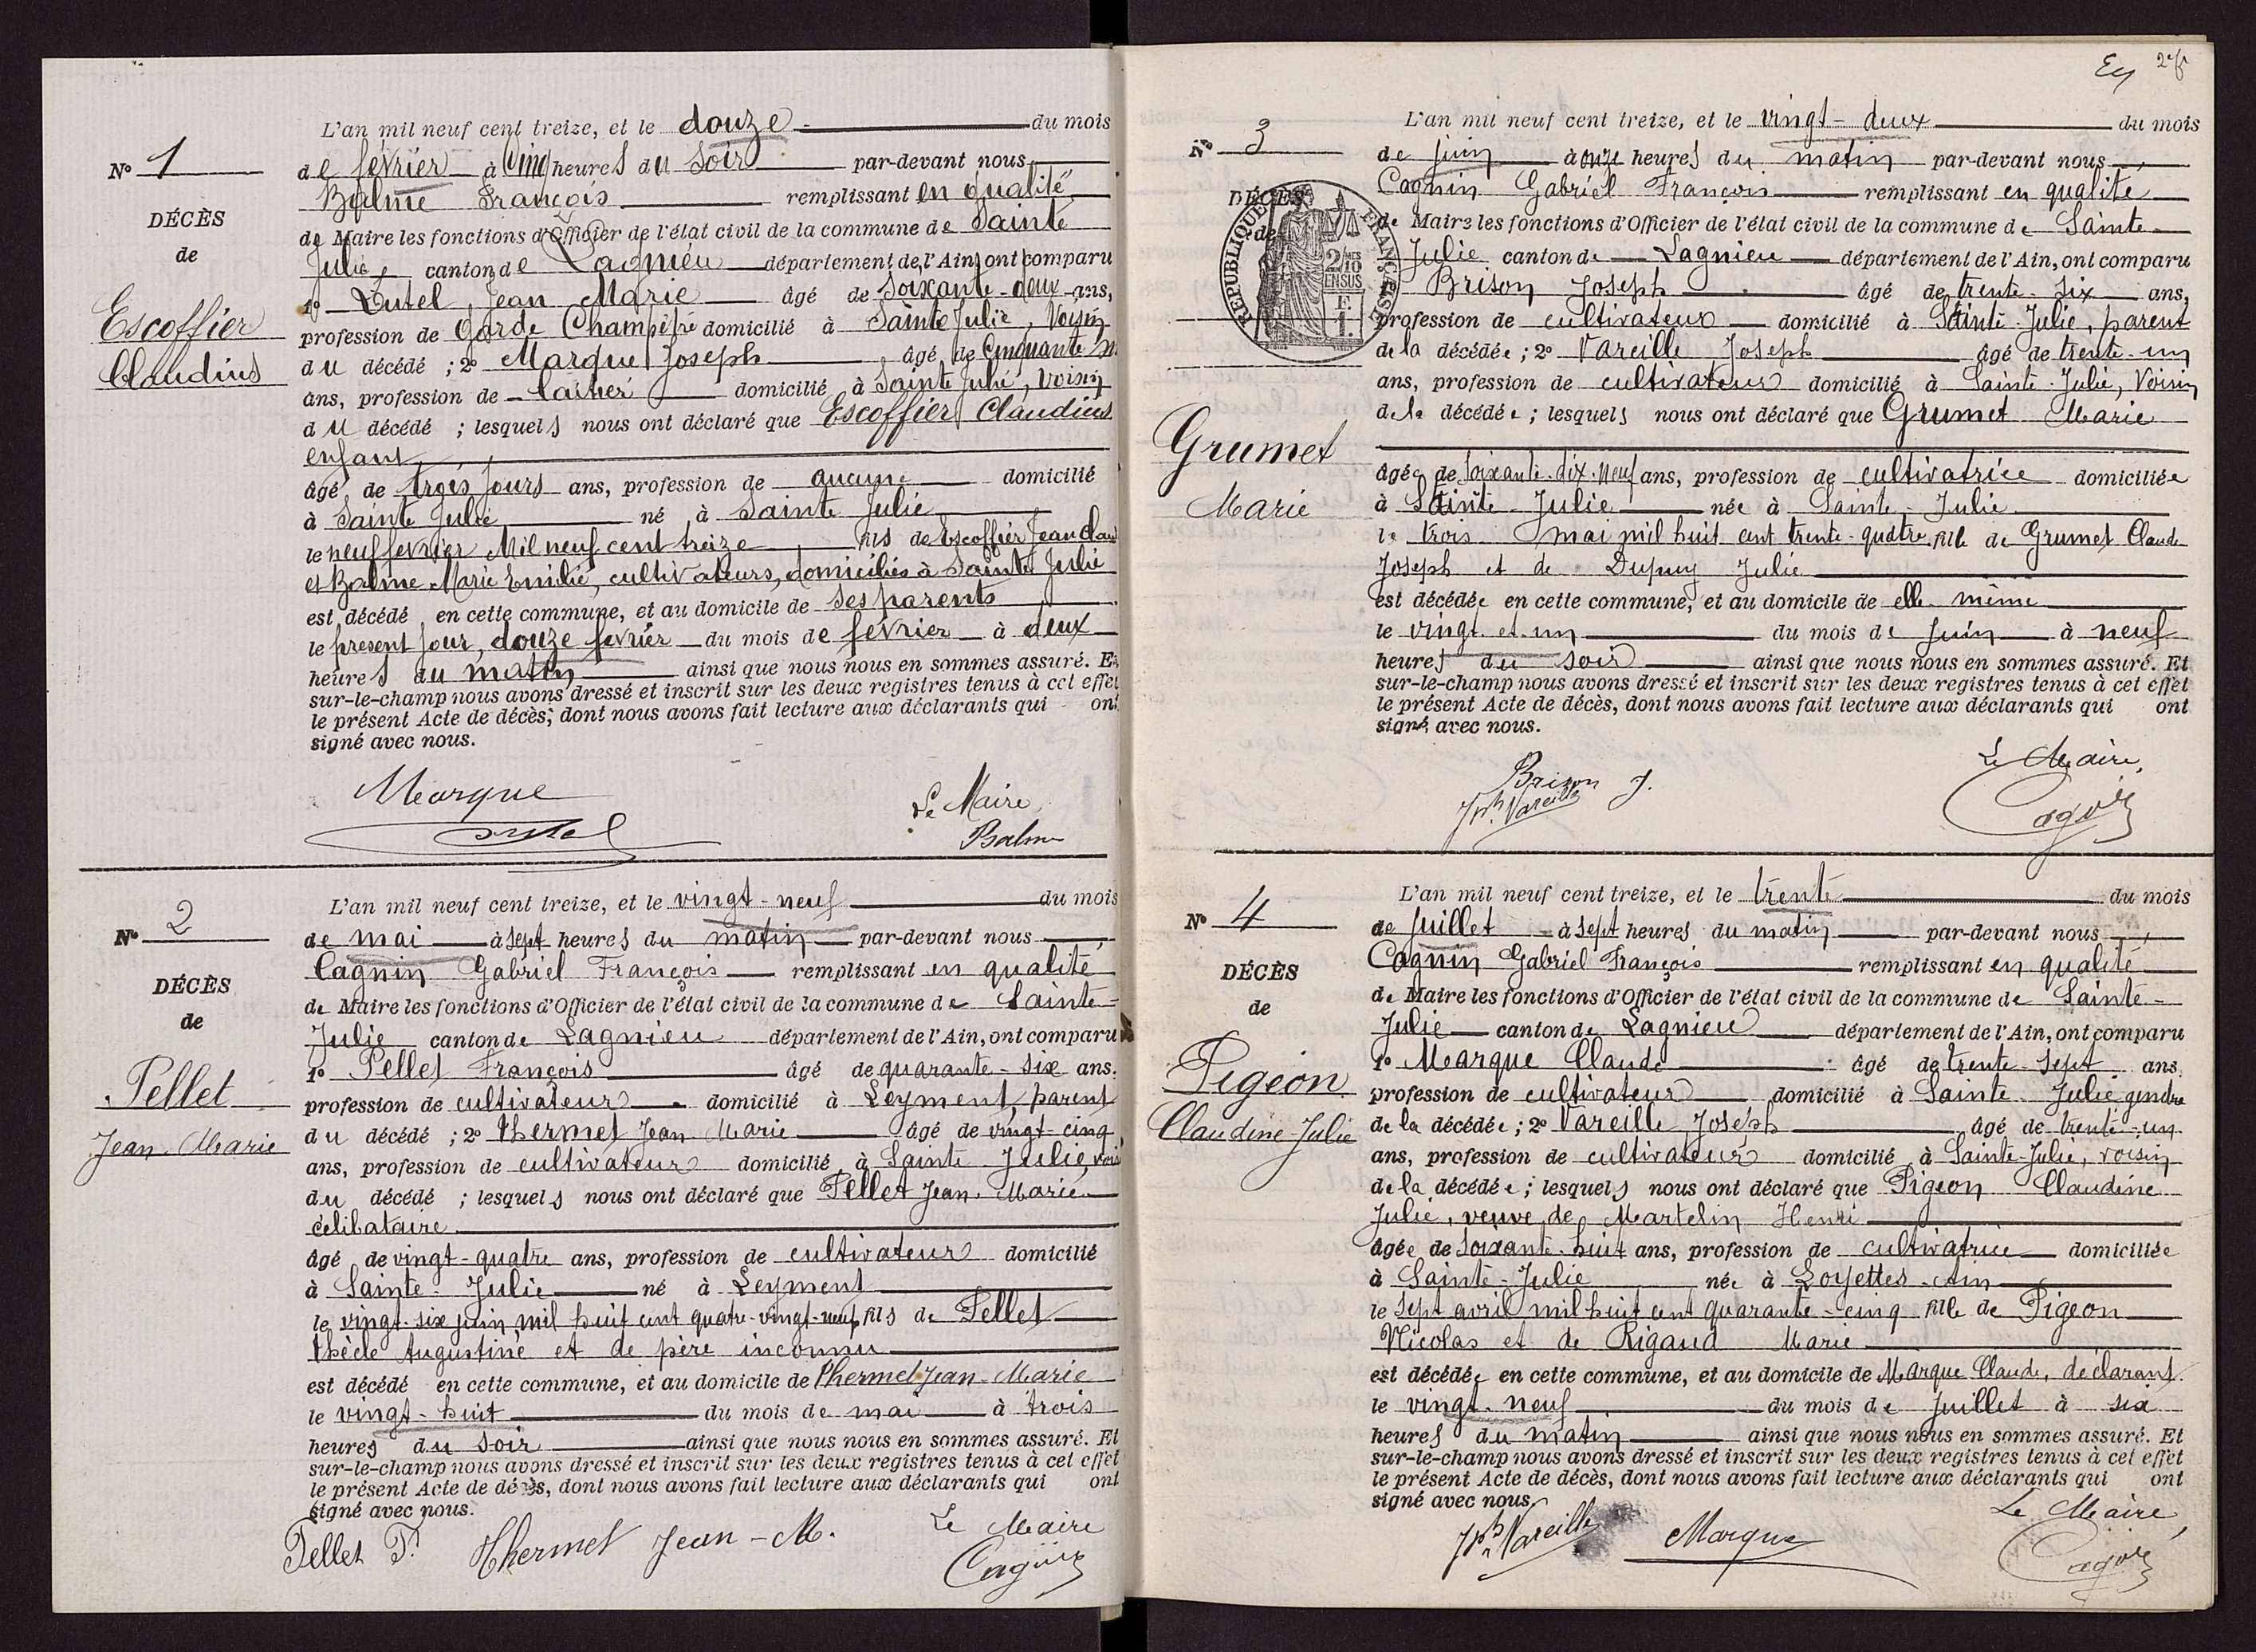 L'an mil neuf cent treize, et le douze du mois
No 1
de février à cinq heures du soir par-devant nous
Balme François remplissant en qualité
DÉCÈS
de Maire les fonctions d'Officier de l'état civil de la commune de Sainte
de
Julie, canton de Lagnieu département de l'Ain, ont comparu
1o Lutel Jean Marie âgé de soixante-deux ans,
Escoffier
profession de Garde Champêtre domicilié à Sainte Julie, voisin
Claudius
du décédé ; 2o Marque Joseph âgé de Cinquante
ans, profession de laitier domicilié à Sainte Julie, voisin
du décédé ; lesquels nous ont déclaré que Escoffier Claudius
enfant
âgé de trois jours ans, profession de aucune domicilié
à Sainte Julie né à Sainte Julie
le neuf février Mil neuf cent treize fils de Escoffier Jean Clau
et Balme Marie Emilie, cultivateurs, domiciliés à Sainte Julie
est décédé en cette commune, et au domicile de ses parents
le présent jour, douze février du mois de février à deux
heures du matin ainsi que nous nous en sommes assuré. Et
sur-le-champ nous avons dressé et inscrit sur les deux registres tenus à cet effet
le présent Acte de décès, dont nous avons fait lecture aux déclarants qui ont
signé avec nous.
Marque
Le Maire
Balme
L'an mil neuf cent treize, et le vingt-neuf du mois
No 2
de mai à sept heures du matin par-devant nous
Cagnin Gabriel François remplissant en qualité
DÉCÈS
de Maire les fonctions d'Officier de l'état civil de la commune de Sainte-
de
Julie canton de Lagnieu département de l'Ain, ont comparu
1o Pellet François âgé de quarante-six ans.
Pellet
profession de cultivateur domicilié à Leyment, parent
Jean Marie
du décédé ; 2o Thermet Jean Marie âgé de vingt-cinq
ans, profession de cultivateur domicilié à Sainte Julie, voisi
du décédé ; lesquels nous ont déclaré que Pellet Jean Marie
célibataire
âgé de vingt-quatre ans, profession de cultivateur domicilié
à Sainte-Julie né à Leyment
le vingt-six juin mil huit cent quatre-vingt-neuf fils de Pellet
Thècle Augustine et de père inconnu
est décédé en cette commune, et au domicile de Thermet Jean-Marie
le vingt-huit du mois de mai à trois
heures du soir ainsi que nous nous en sommes assuré. Et
sur-le-champ nous avons dressé et inscrit sur les deux registres tenus à cet effet
le présent Acte de décès, dont nous avons fait lecture aux déclarants qui ont
signé avec nous.
Pellet F. Thermet Jean-M.
Le Maire
Cagnin
L'an mil neuf cent treize, et le vingt-deux du mois
No 3
de juin à onze heures du matin par-devant nous
Cagnin Gabriel François remplissant en qualité
DÉCÈS
de Maire les fonctions d'Officier de l'état civil de la commune de Sainte-
de
RÉPUBLIQUE FRANÇAISE
2/10 EN SUS
Julie canton de Lagnieu département de l'Ain, ont comparu
Brison Joseph âgé de trente-six ans,
profession de cultivateur domicilié à Sainte-Julie, parent
de la décédée ; 2o Vareille Joseph âgé de trente-un
ans, profession de cultivateur domicilié à Sainte-Julie, voisin
de la décédée ; lesquels nous ont déclaré que Grumet Marie
Grumet
Marie
âgée de soixante-dix-neuf ans, profession de cultivatrice domiciliée
à Sainte-Julie née à Sainte-Julie
le trois mai mil huit cent trente-quatre fille de Grumet Claude
Joseph et de Dupuy Julie
est décédée en cette commune, et au domicile de elle-même
le vingt-et-un du mois de juin à neuf
heures du soir ainsi que nous nous en sommes assuré. Et
sur-le-champ nous avons dressé et inscrit sur les deux registres tenus à cet effet
le présent Acte de décès, dont nous avons fait lecture aux déclarants qui ont
signé avec nous.
Brison J.
Jph Vareille
Le Maire,
Cagnin
L'an mil neuf cent treize, et le trente du mois
No 4
de juillet à sept heures du matin par-devant nous
Cagnin Gabriel François remplissant en qualité
DÉCÈS
de Maire les fonctions d'Officier de l'état civil de la commune de Sainte-
de
Julie canton de Lagnieu département de l'Ain, ont comparu
1o Marque Claude âgé de trente-sept ans,
Pigeon
profession de cultivateur domicilié à Sainte-Julie gendre
Claudine Julie
de la décédée ; 2o Vareille Joseph âgé de trente-un
ans, profession de cultivateur domicilié à Sainte-Julie, voisin
de la décédée ; lesquels nous ont déclaré que Pigeon Claudine
Julie, veuve de Martelin Henri
âgée de soixante-huit ans, profession de cultivatrice domiciliée
à Sainte-Julie née à Loyettes-Ain
le sept avril mil huit cent quarante-cinq fille de Pigeon
Nicolas et de Rigaud Marie
est décédée en cette commune, et au domicile de Marque Claude, déclarant
le vingt-neuf du mois de juillet à six
heures du matin ainsi que nous nous en sommes assuré. Et
sur-le-champ nous avons dressé et inscrit sur les deux registres tenus à cet effet
le présent Acte de décès, dont nous avons fait lecture aux déclarants qui ont
signé avec nous.
Jph Vareille Marque
Le Maire,
Cagnin